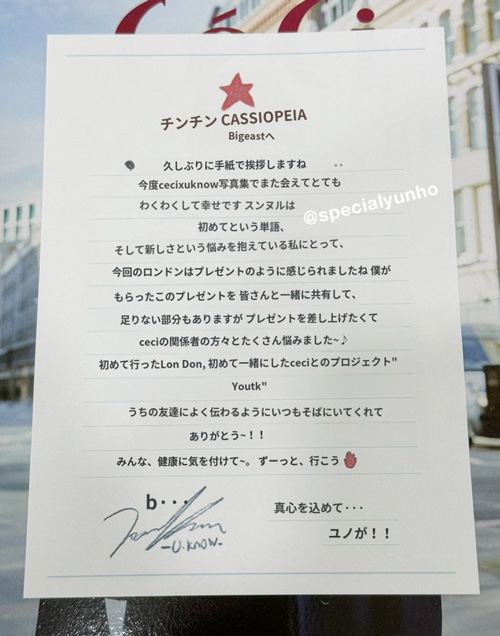 CéCi
チンチン CASSIOPEIA
Bigeastへ
久しぶりに手紙で挨拶しますね
今度cecixuknow写真集でまた会えてとても
わくわくして幸せです スンヌルは
初めてという単語、
@specialyunho
そして新しさという悩みを抱えている私にとって、
今回のロンドンはプレゼントのように感じられましたね 僕が
もらったこのプレゼントを 皆さんと一緒に共有して、
足りない部分もありますが プレゼントを差し上げたくて
ceciの関係者の方々とたくさん悩みました~♪
初めて行ったLon Don, 初めて一緒にしたceciとのプロジェクト"
Youtk"
うちの友達によく伝わるようにいつもそばにいてくれて
ありがとう~！！
みんな、健康に気を付けて~。 ずーっと、行こう
b・・・
真心を込めて・・・
-U.KNOW-
ユノが！！